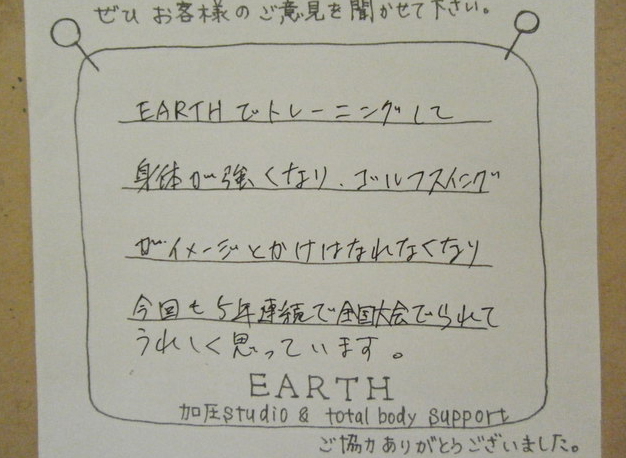 ぜひ お客様の ご意見を聞かせて下さい。
EARTHでトレーニングして
身体が強くなり、ゴルフスイング
がイメージとかけはなれなくなり
今回も5年連続で全国大会でられて
うれしく思っています。
EARTH
加圧studio & total body support
ご協力ありがとうございました。